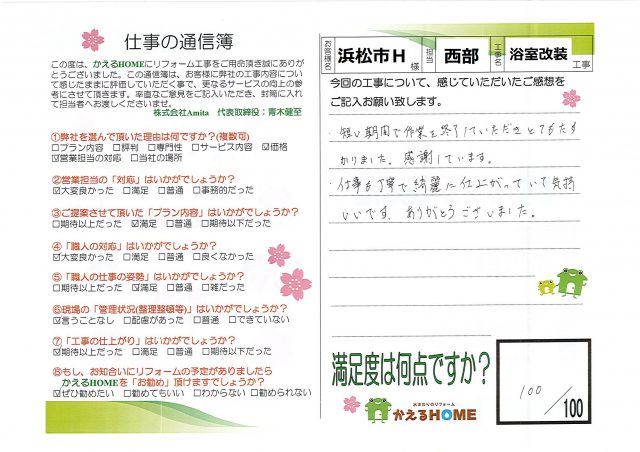 仕事の通信簿
この度は、かえるHOMEにリフォーム工事をご用命頂き誠にありが
とうございました。この通信簿は、お客様に弊社の工事内容につい
て感じたままに評価していただく事で、更なるサービスの向上の参
考にさせて頂きます。率直なご意見をご記入いただき、封筒に入れ
て担当者へお渡しくださいませ。
株式会社Amita 代表取締役：青木健至
①弊社を選んで頂いた理由は何ですか?(複数可)
□プラン内容 □評判 □専門性 □サービス内容 ☑価格
☑営業担当の対応 □当社の場所
②営業担当の「対応」はいかがでしょうか？
☑大変良かった □満足 □普通 □事務的だった
③ご提案させて頂いた「プラン内容」はいかがでしょうか？
□期待以上だった ☑満足 □普通 □期待以下だった
④「職人の対応」はいかがでしょうか？
☑大変良かった □満足 □普通 □良くなかった
⑤「職人の仕事の姿勢」はいかがでしょうか？
□期待以上だった ☑満足 □普通 □雑だった
⑥現場の「管理状況(整理整頓等)」はいかがでしょうか？
☑言うことなし □配慮があった □普通 □できていない
⑦「工事の仕上がり」はいかがでしょうか？
☑期待以上だった □満足 □普通 □期待以下だった
⑧もし、お知合いにリフォームの予定がありましたら
かえるHOMEを「お勧め」頂けますでしょうか？
☑ぜひ勧めたい □勧めてもいい □わからない □勧められない
お客様名 浜松市H 様 担当 西部 工事名 浴室改装 工事
今回の工事について、感じていただいたご感想を
ご記入お願い致します。
・短い期間で作業を終了していただきとてもたす
かりました。感謝しています。
・仕事も丁寧で綺麗に仕上がっていて気持
いいです。ありがとうございました。
満足度は何点ですか？
100/100
水まわりのリフォーム
かえるHOME